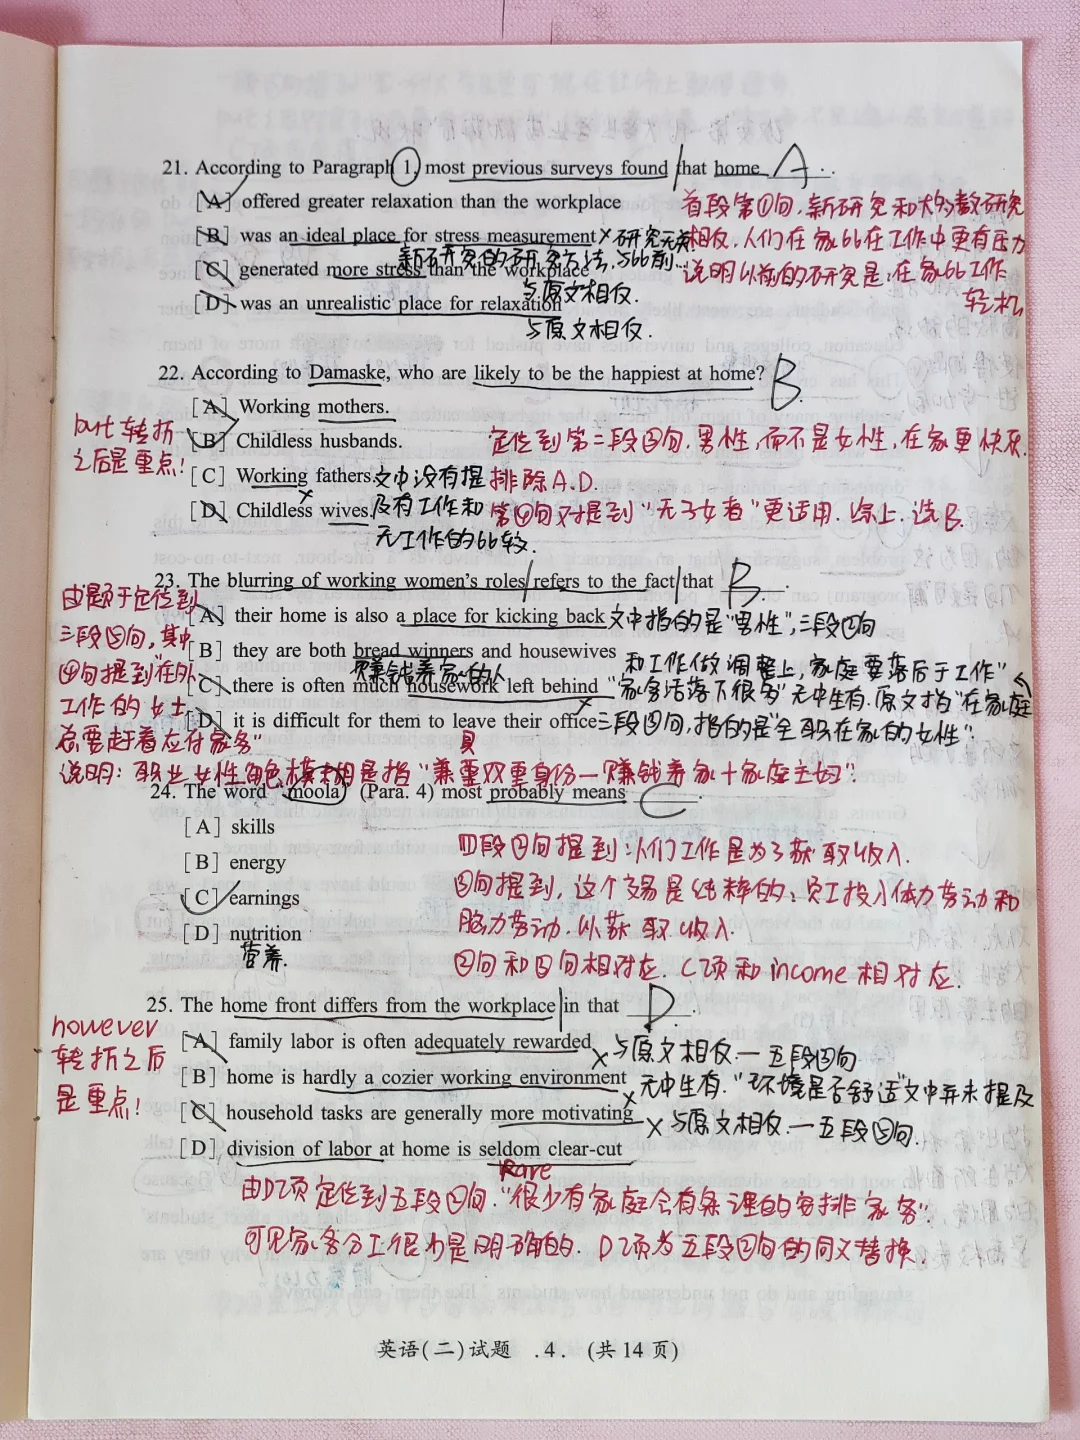 21. According to Paragraph 1, most previous surveys found that home A.
[A] offered greater relaxation than the workplace
首段第①句,新研究和大多数研究
[B] was an ideal place for stress measurement × 研究无关
相反,人们在家比在工作中更有压力
新研究的研究方法,与比前...
[C] generated more stress than the workplace
说明以前的研究是:在家比工作
轻松
与原文相仅.
[D] was an unrealistic place for relaxation
与原文相仅.
22. According to Damaske, who are likely to be the happiest at home? B.
[A] Working mothers.
but转折
之后是重点!
[B] Childless husbands.
定位到第二段③句.男性,而不是女性,在家更快乐.
[C] Working fathers. 文中没有提
排除A.D.
[D] Childless wives. 及有工作和
无工作的比较.
第④句又提到"无子女者"更适用.综上.选B.
23. The blurring of working women's roles refers to the fact that B.
由题干定位到
三段⑤句,其中
④句提到"在外
工作的女士
总要赶着应付家务"
[A] their home is also a place for kicking back 文中指的是"男性",三段①句
[B] they are both bread winners and housewives
赚钱养家的人
和工作做调整上,家庭要落后于工作"
[C] there is often much housework left behind "家务活落下很多"无中生有.原文指"在家庭
[D] it is difficult for them to leave their office 三段④句,指的是"全职在家的女性".
说明:职业女性角色模糊是指"兼具双重身份—赚钱养家+家庭主妇".
24. The word "moola" (Para. 4) most probably means C.
[A] skills
[B] energy
[C] earnings
[D] nutrition
营养.
四段②句提到:人们工作是为了获取收入.
③句提到,这个交易是纯粹的:员工投入体力劳动和
脑力劳动.以获取收入.
②句和③句相对应.C项和income相对应.
25. The home front differs from the workplace in that D.
however
转折之后
是重点!
[A] family labor is often adequately rewarded × 与原文相仅.—五段④句
[B] home is hardly a cozier working environment × 无中生有."环境是否舒适"文中并未提及
[C] household tasks are generally more motivating × 与原文相仅.—五段③句.
[D] division of labor at home is seldom clear-cut
rare
由D项定位到五段②句."很少有家庭会有条理的安排家务"
可见家务分工很少是明确的.D项为五段②句的同义替换.
英语(二)试题 .4. (共14页)